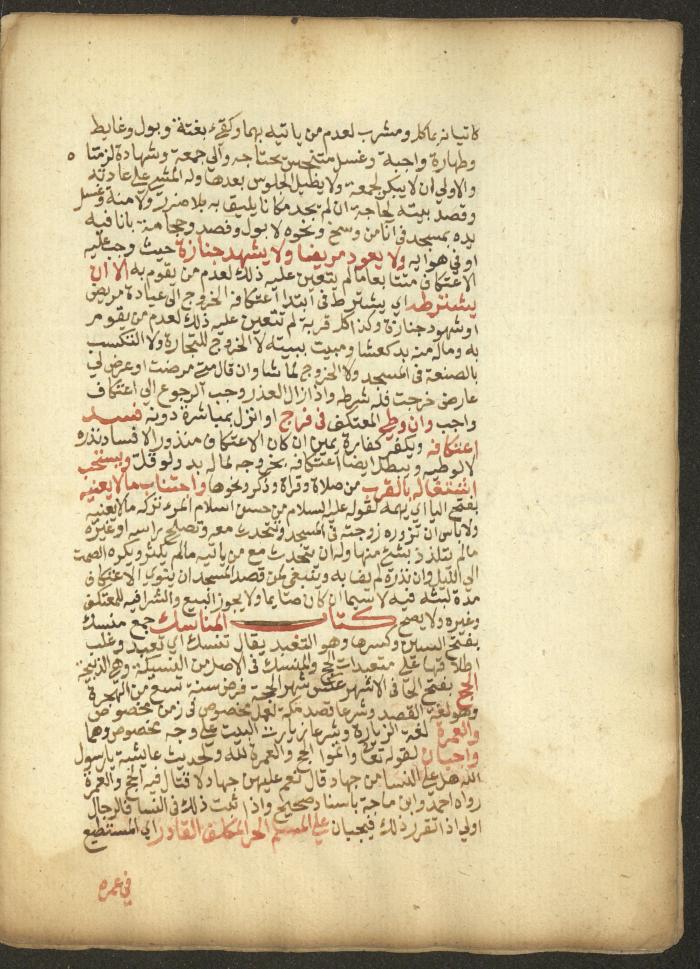 كاتيانه بماكل ومشرب لعدم من ياتيه بهما وكقيء بغتة وبول وغايط
وطهارة واجبة وغسل متنجس يحتاجه والى جمعة وشهادة لزمتا
والاولى ان لا يبكر لجمعة ولا يطيل الجلوس بعدها وله المشي على عادته
وقصد بيته لحاجة ان لم يجد مكانا يليق به بلا ضرر ولا منة وغسل
يده بمسجد في انا من وسخ ونحوه لا بول وفصد وحجامة بانا فيه
او في هوايه ولا يعود مريضا ولا يشهد جنازة حيث وجب عليه
الاعتكاف متتابعا ما لم يتعين عليه ذلك لعدم من يقوم به الا ان
يشترطه اي يشترط في ابتدا اعتكافه الخروج الى عيادة مريض
او شهود جنازة وكذا كل قربة لم تتعين عليه ذلك لعدم من يقوم
به وماله منه بد كعشا ومبيت ببيته لا الخروج للتجارة ولا التكسب
بالصنعة في المسجد ولا الخروج لما شا وان قال متى مرضت او عرض لي
عارض خرجت فله شرطه واذا زال العذر وجب الرجوع الى اعتكاف
واجب وان وطي المعتكف في فرج او انزل بمباشرة دونه فسد
اعتكافه ويكفر كفارة يمين ان كان الاعتكاف منذورا لافساد نذره
لا لوطيه ويبطل ايضا اعتكافه بخروجه لما له بد ولو قل ويستحب
اشتغاله بالقرب من صلاة وقراة وذكر ونحوها واجتناب ما لا يعنيه
بفتح اليا اي يهمه لقوله عليه السلام من حسن اسلام المرء تركه ما لا يعنيه
ولا باس ان تزوره زوجته في المسجد وتتحدث معه وتصلح راسه او غيره
ما لم يتلذذ بشيء منها وله ان يتحدث مع من ياتيه ما لم يكثر ويكره الصمت
الى الليل وان نذره لم يف به وينبغي لمن قصد المسجد ان ينوي الاعتكاف
مدة لبثه فيه لا سيما ان كان صايما ولا يجوز البيع والشرا فيه للمعتكف
وغيره ولا يصح كتاب المناسك جمع منسك
بفتح السين وكسرها وهو التعبد يقال تنسك اي تعبد وغلب
اطلاقها على متعبدات الحج والمنسك في الاصل من النسيكة وهي الذبيحة
الحج بفتح الحا في الاشهر عكس شهر الحجة فرض سنة تسع من الهجرة
وهو لغة القصد وشرعا قصد مكة لعمل مخصوص في زمن مخصوص
والعمرة لغة الزيارة وشرعا زيارة البيت على وجه مخصوص وهما
واجبان لقوله تعالى واتموا الحج والعمرة لله ولحديث عايشة يا رسول
الله هل على النسا من جهاد قال نعم عليهن جهاد لا قتال فيه الحج والعمرة
رواه احمد وابن ماجة باسناد صحيح واذا ثبت ذلك في النسا فالرجال
اولى اذا تقرر ذلك فيجبان على المسلم الحر المكلف القادر اي المستطيع
في عمره